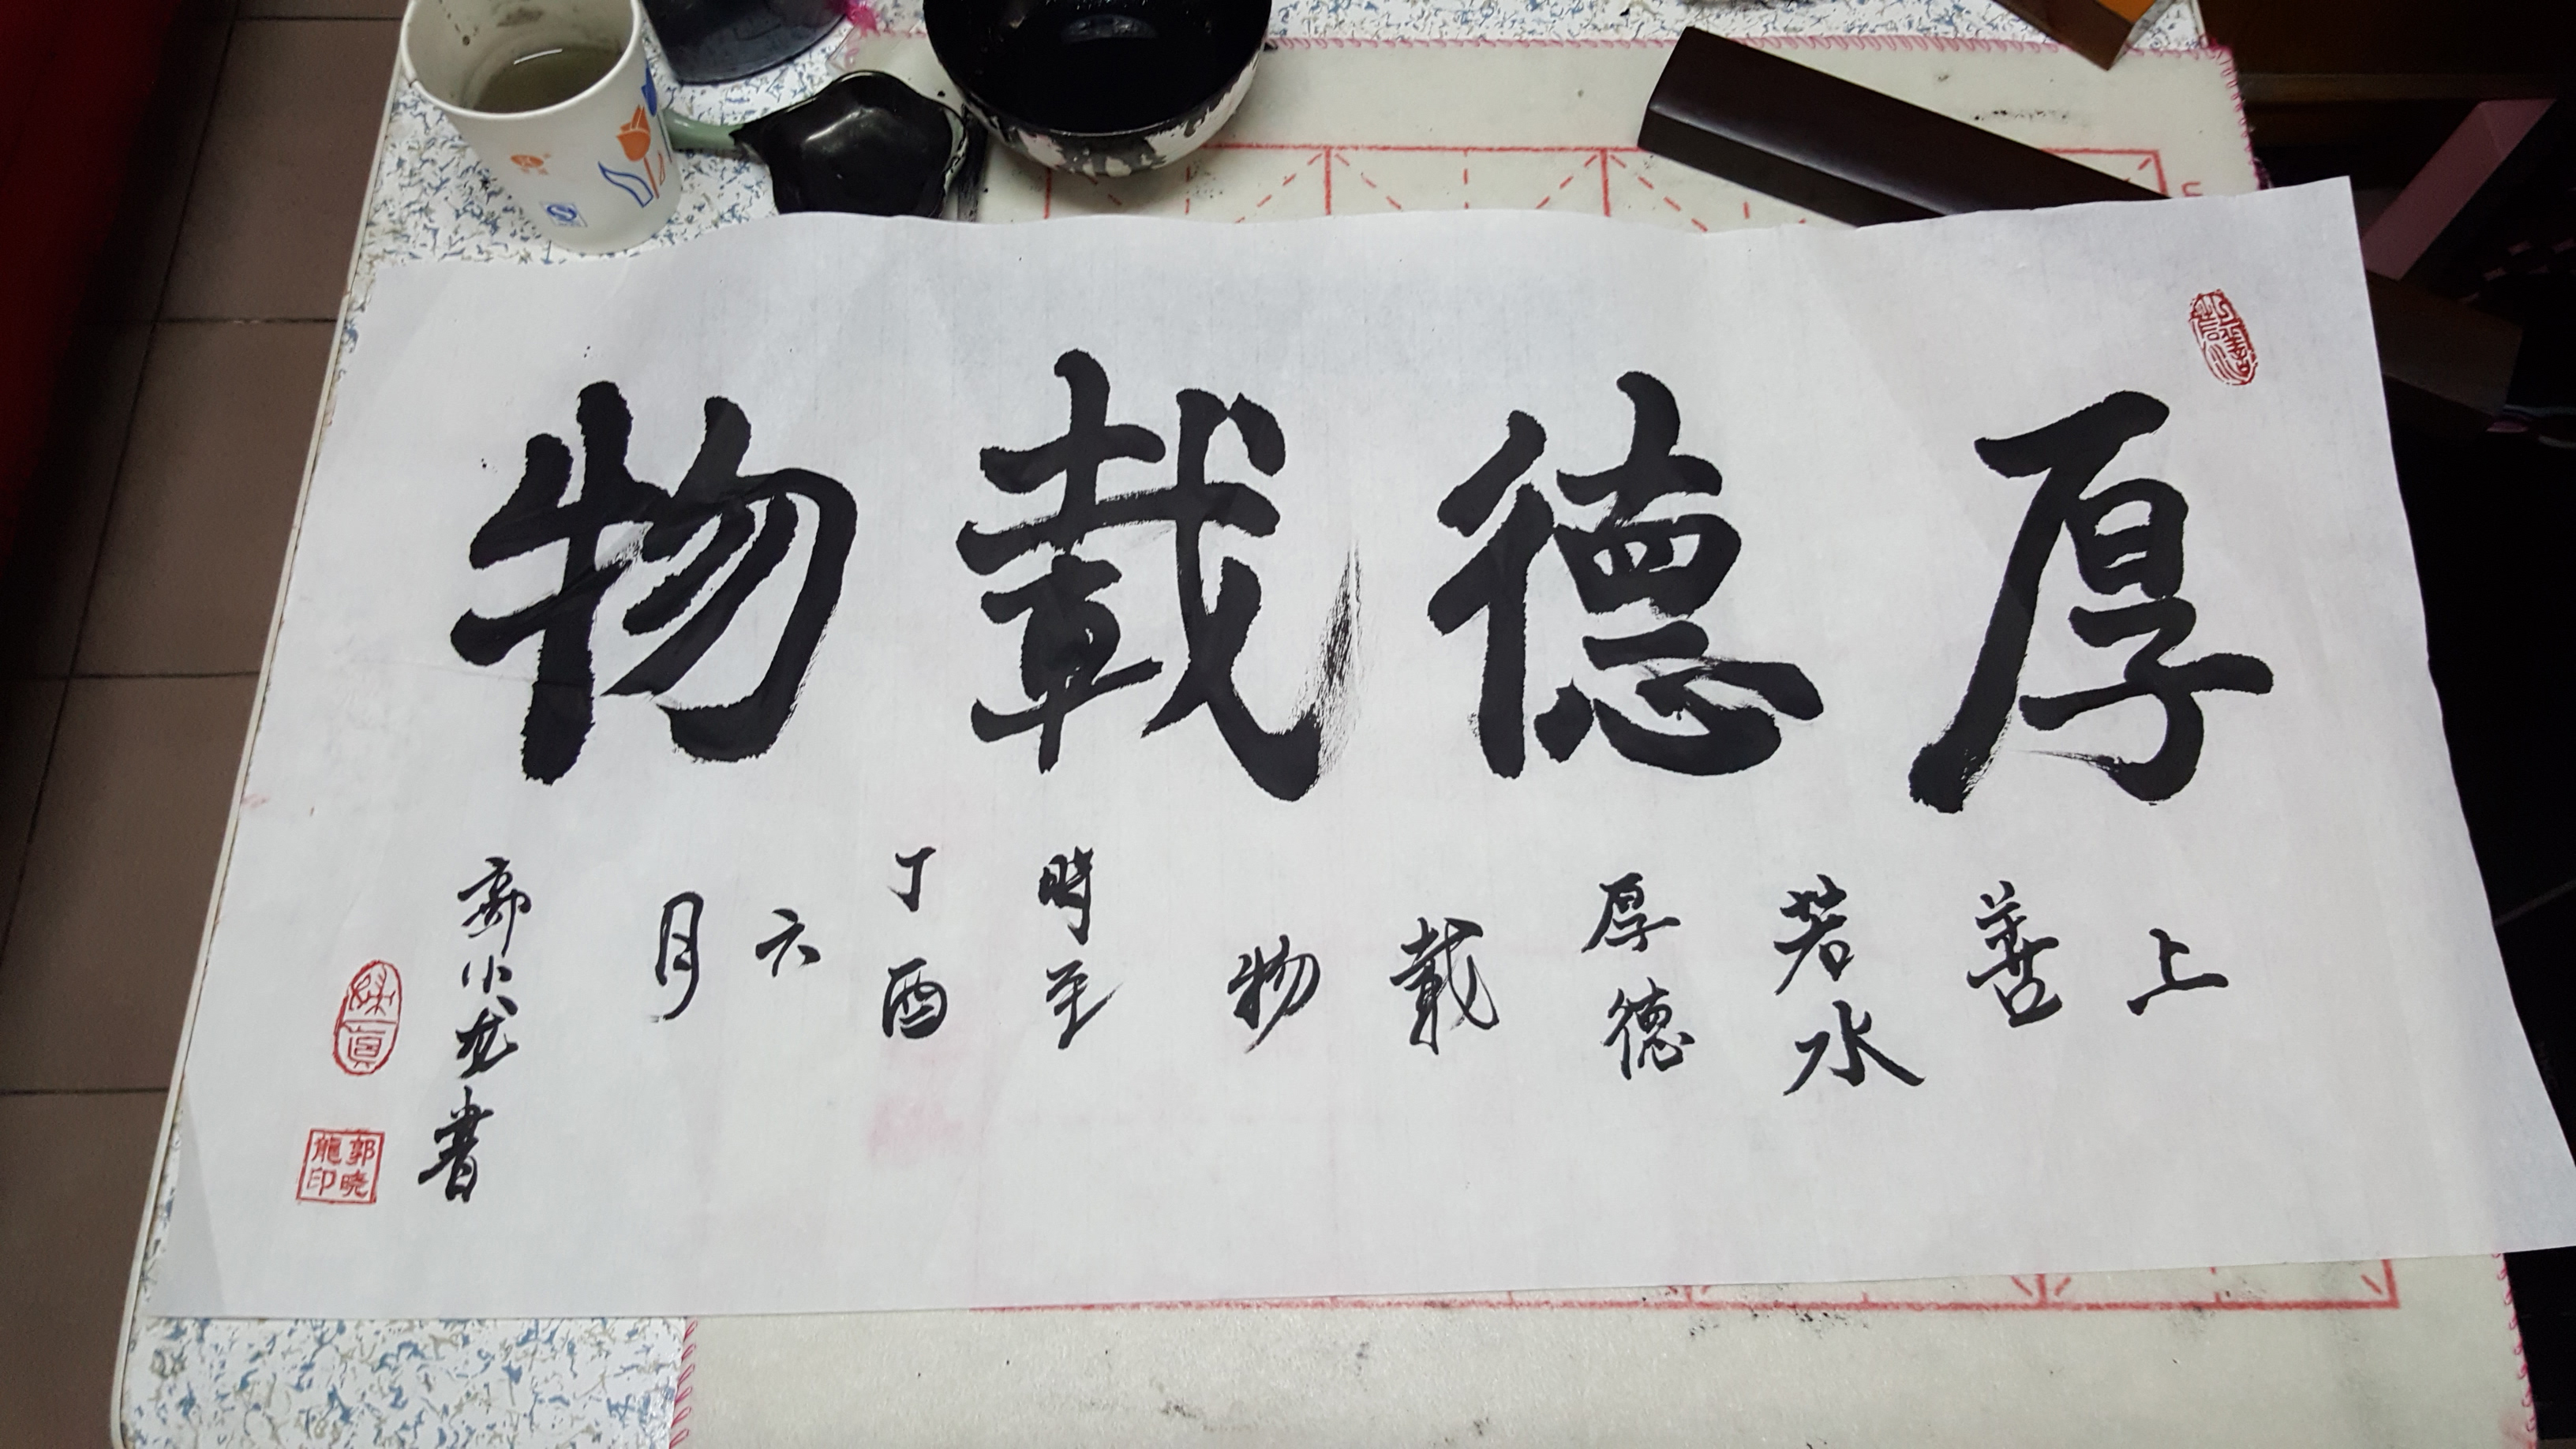 厚德載物
上善若水厚德載物時至丁酉六月
郭小龙書
郭晓龍印